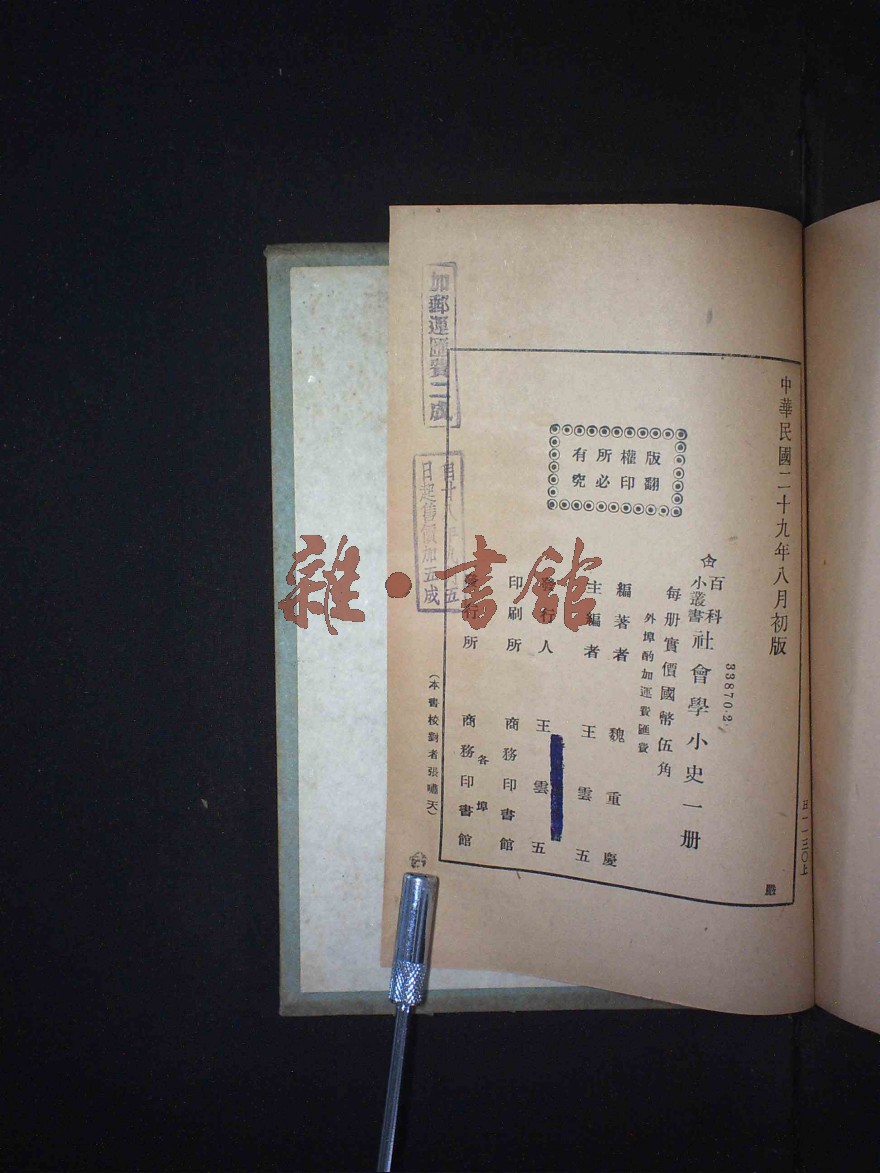 中華民國二十九年八月初版
版權所有
翻印必究
33870·2
百科
小叢書
社會學小史一册
每册實價國幣伍角
外埠酌加運費匯費
編著者 魏重慶
主編者 王雲五
發行人 王雲五
印刷所 商務印書館
發行所 各埠
商務印書館
(本書校對者張嘯天)
加郵運匯費二成
日起售價加五成
雜·書館